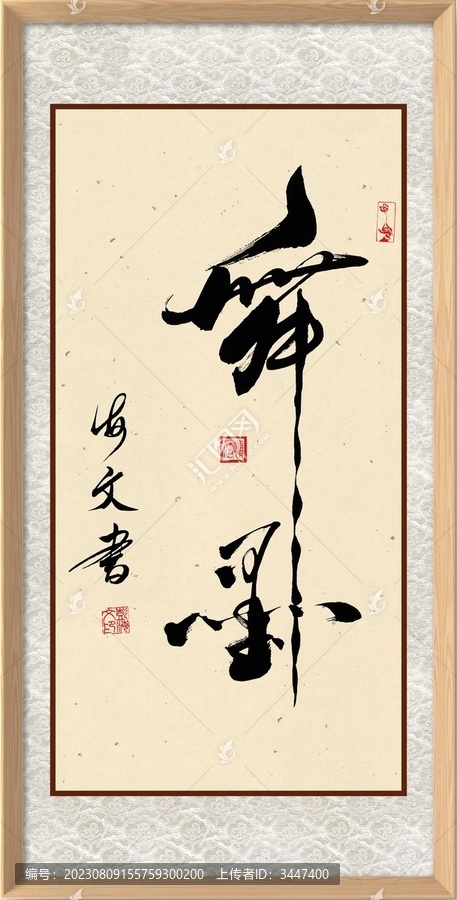 舞墨
海文书
编号：20230809155759300200 上传者ID：3447400